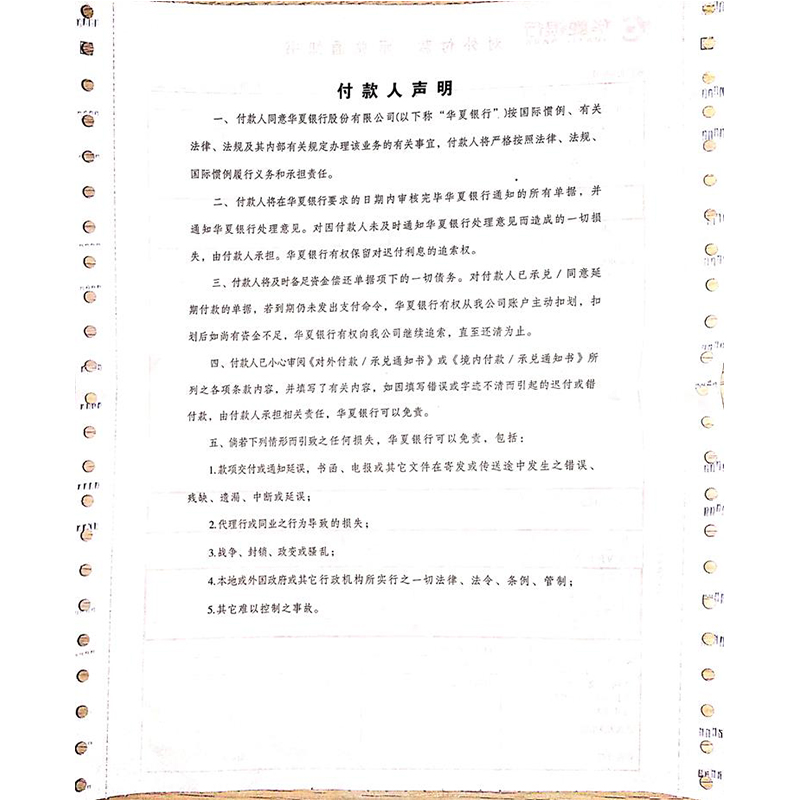 付款人声明
一、付款人同意华夏银行股份有限公司(以下称“华夏银行”)按国际惯例、有关
法律、法规及其内部有关规定办理该业务的有关事宜，付款人将严格按照法律、法规、
国际惯例履行义务和承担责任。
二、付款人将在华夏银行要求的日期内审核完毕华夏银行通知的所有单据，并
通知华夏银行处理意见。对因付款人未及时通知华夏银行处理意见而造成的一切损
失，由付款人承担。华夏银行有权保留对迟付利息的追索权。
三、付款人将及时备足资金偿还单据项下的一切债务。对付款人已承兑/同意延
期付款的单据，若到期仍未发出支付命令，华夏银行有权从我公司账户主动扣划，扣
划后如尚有资金不足，华夏银行有权向我公司继续追索，直至还清为止。
四、付款人已小心审阅《对外付款/承兑通知书》或《境内付款/承兑通知书》所
列之各项条款内容，并填写了有关内容，如因填写错误或字迹不清而引起的迟付或错
付款，由付款人承担相关责任，华夏银行可以免责。
五、倘若下列情形而引致之任何损失，华夏银行可以免责，包括：
1.款项交付或通知延误，书函、电报或其它文件在寄发或传送途中发生之错误、
残缺、遗漏、中断或延误；
2.代理行或同业之行为导致的损失；
3.战争、封锁、政变或骚乱；
4.本地或外国政府或其它行政机构所实行之一切法律、法令、条例、管制；
5.其它难以控制之事故。